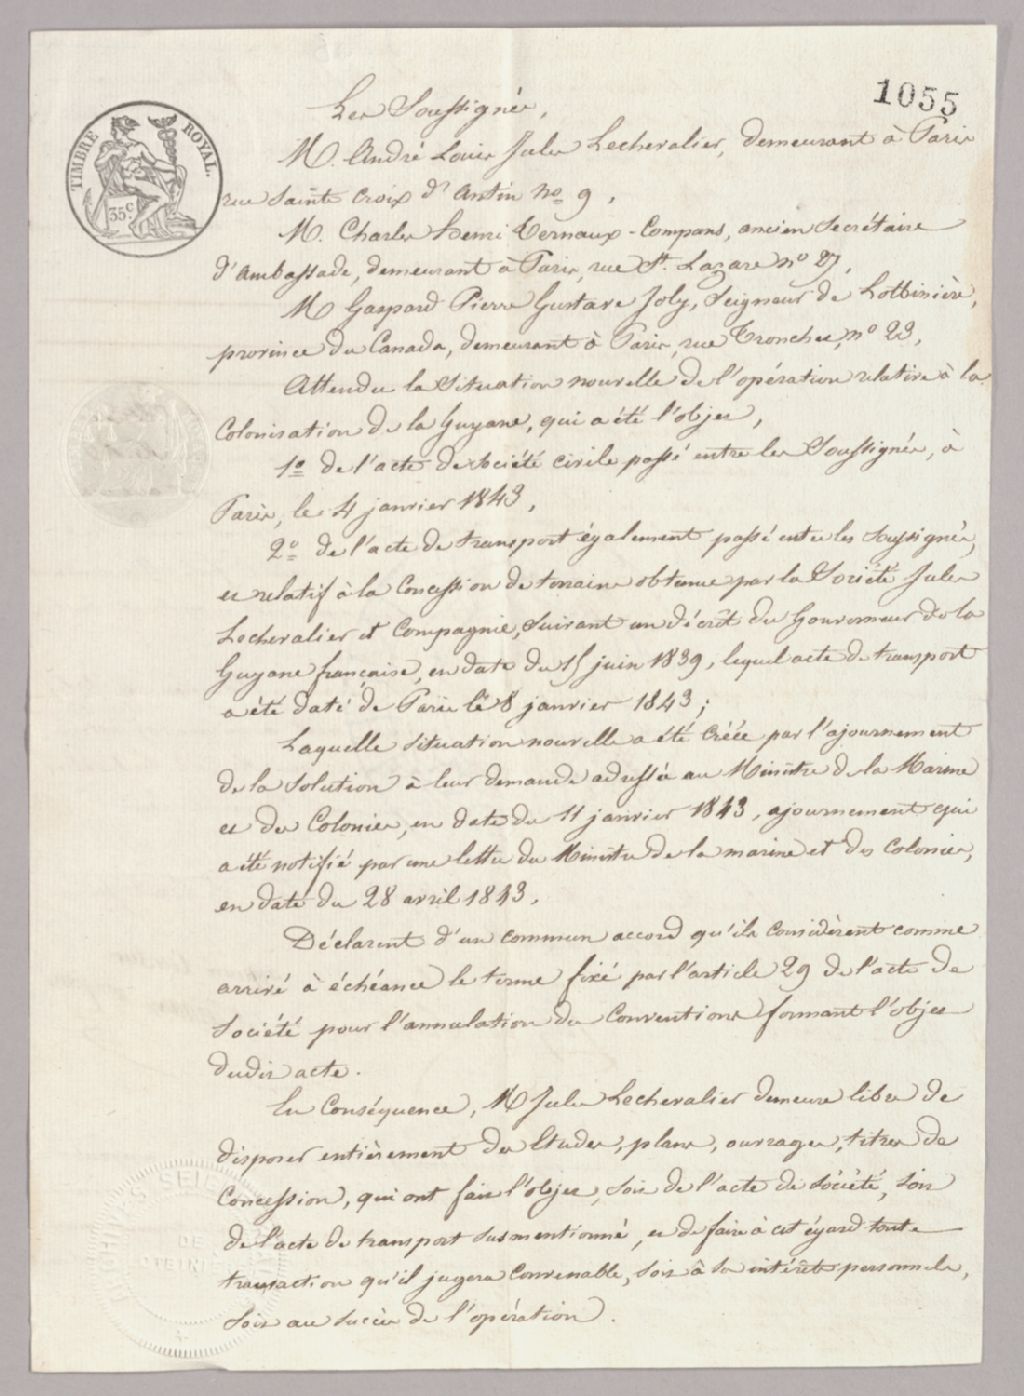 1055
TIMBRE ROYAL.
35c.
Les Soussignés,
M. André Louis Jules Lechevalier, demeurant à Paris
rue Sainte Croix d'Antin no 9,
M. Charles Henri Ternaux-Compans, ancien Secrétaire
d'Ambassade, demeurant à Paris, rue St. Lazare no
M Gaspard Pierre Gustave Joly, Seigneur de Lotbinière,
province du Canada, demeurant à Paris, rue Tronchet, no 23,
Attendu la Situation nouvelle de l'opération relative à la
Colonisation de la Guyane, qui a été l'objet,
1o de l'acte de Société civile passé entre les Soussignés, à
Paris, le 4 janvier 1843,
2o de l'acte de transport également passé entre les Soussignés,
et relatif à la Concession de terrains obtenue par la Société Jules
Lechevalier et Compagnie, Suivant un décret du Gouverneur de la
Guyane française, en date du 15 juin 1839, lequel acte de transport
a été daté de Paris le 8 janvier 1843;
Laquelle situation nouvelle a été créée par l'ajournement
de la Solution à leur demande adressée au Ministre de la Marine
et des Colonies, en date du 11 janvier 1843, ajournement qui
a été notifié par une lettre du Ministre de la marine et des Colonies,
en date du 28 avril 1843.
Déclarent d'un commun accord qu'ils considèrent comme
arrivé à échéance le terme fixé par l'article 29 de l'acte de
Société pour l'annulation des Conventions formant l'objet
dudit acte.
En Conséquence, M Jules Lechevalier demeure libre de
disposer entièrement des Etudes, plans, ouvrages, titres de
Concession, qui ont fait l'objet, soit de l'acte de Société, soit
de l'acte de transport susmentionné, et de faire à cet égard toute
transaction qu'il jugera Convenable, soit à ses intérêts personnels,
soit au succès de l'opération.